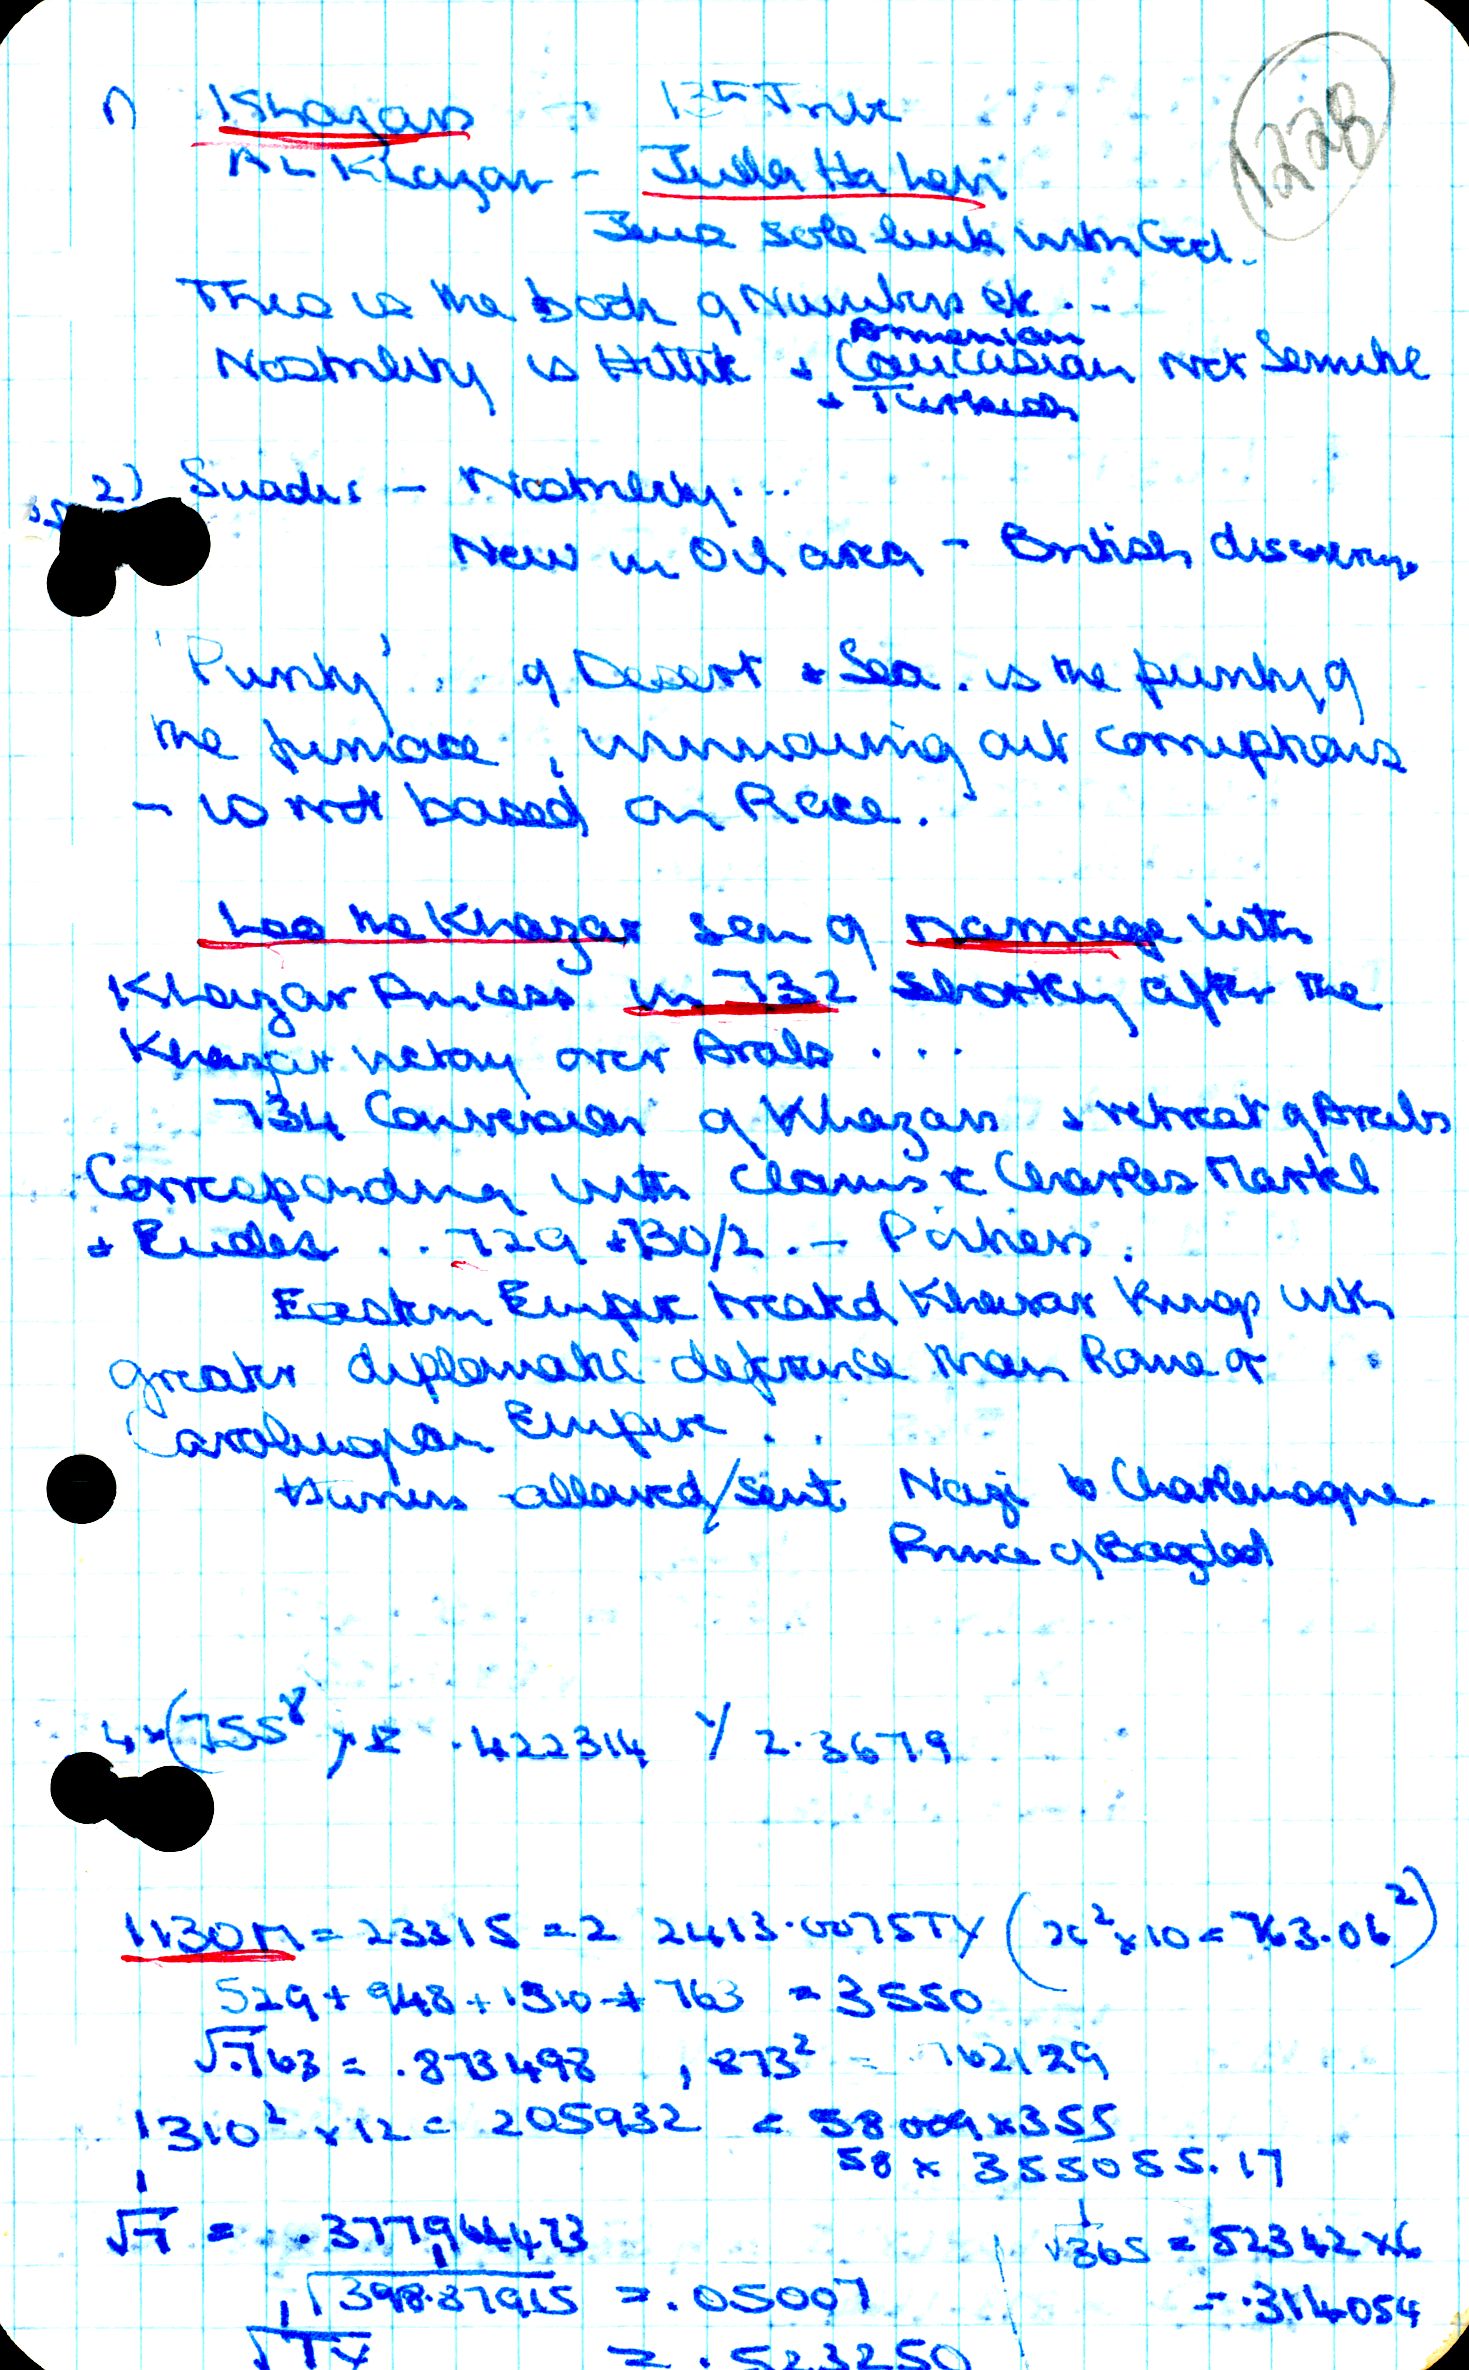 1228
1) Khazars - 13th Tribe
AL Khazar - Juda Ha Levi
Jews sole link with God.
This is the book of Numbers etc...
Armenian
Nostrility is Hittite + Caucasian not Semitic
+ Turkish
2) Suadis - Nostrility...
New in Oil area - British discovery.
'Purity' .. of Desert + Sea. is the purity of
the furnace, winnowing out corruptions
- is not based on Race.
Leo the Khazar son of marriage with
Khazar Princess in 732 shortly after the
Khazar victory over Arabs ...
734 Conversion of Khazars + retreat of Arabs
Corresponding with Charles Martel
+ Eudes .. 729 + 730/2. - Poitiers.
Eastern Empire treated Khazar Kings with
greater diplomatic deference than Rome or
Carolingian Empire ..
allowed/sent Nazi to Charlemagne
Prince of Bagdad
4 × (755⁸) .422314 / 2.3679
1130M = 23315 = 2 2413.0075TY (x² × 10 = 763.06²)
529 + 948 + 1310 + 763 = 3550
√.763 = .873498 , 873² = 762129
1310² × 12 = 205932 = 58009 × 355
58 × 355055.17
1
√7 = .377964473
1
√365 = 52342 × 6
= .314054
1
√398.87915 = .05007
1
√TY = .523250